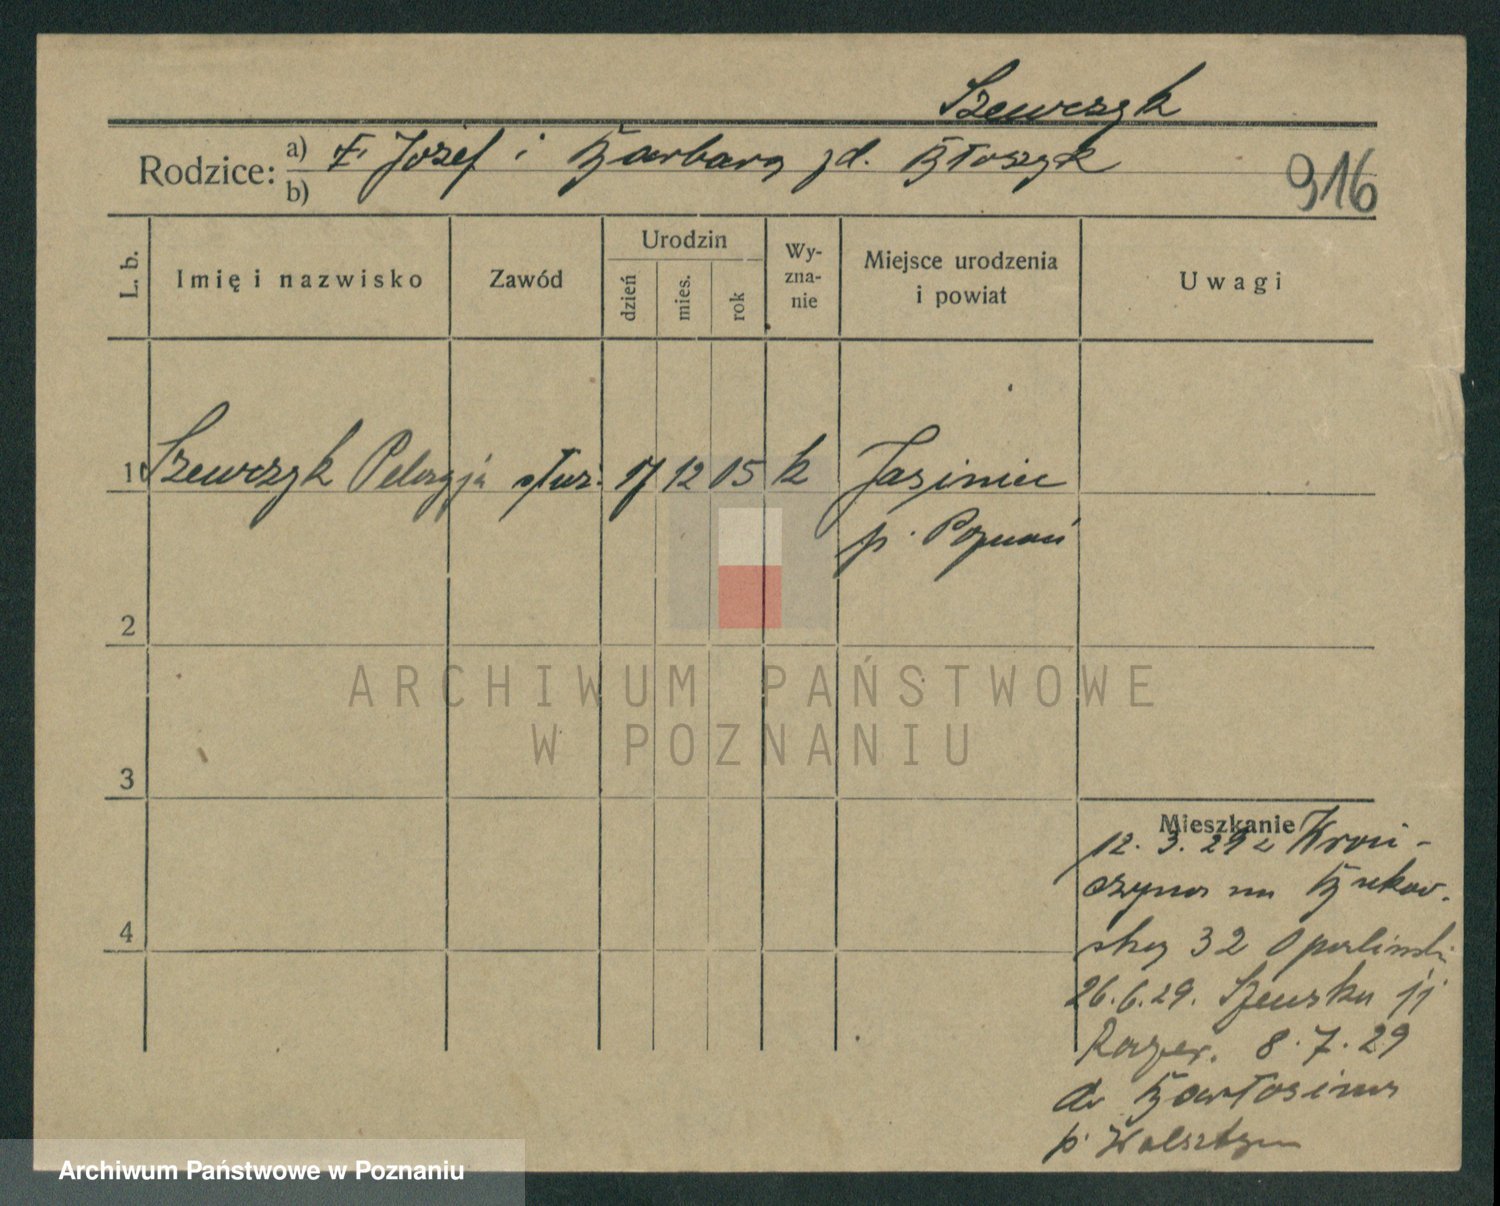 Szewczyk
Rodzice: a) Józef i Barbara zd. Błoszyk
b)
916
L. b.
Imię i nazwisko
Zawód
Urodzin
dzień
mies.
rok
Wy-
zna-
nie
Miejsce urodzenia
i powiat
Uwagi
1 Szewczyk Pelagja służ. 17 12 15 k Jasiniec
p. Poznań
2
3
4
Mieszkanie
12. 3. 29 z
na Bukow-
ską 32
26. 6. 29.
8. 7. 29
p. Wolsztyn
ARCHIWUM PAŃSTWOWE
W POZNANIU
Archiwum Państwowe w Poznaniu